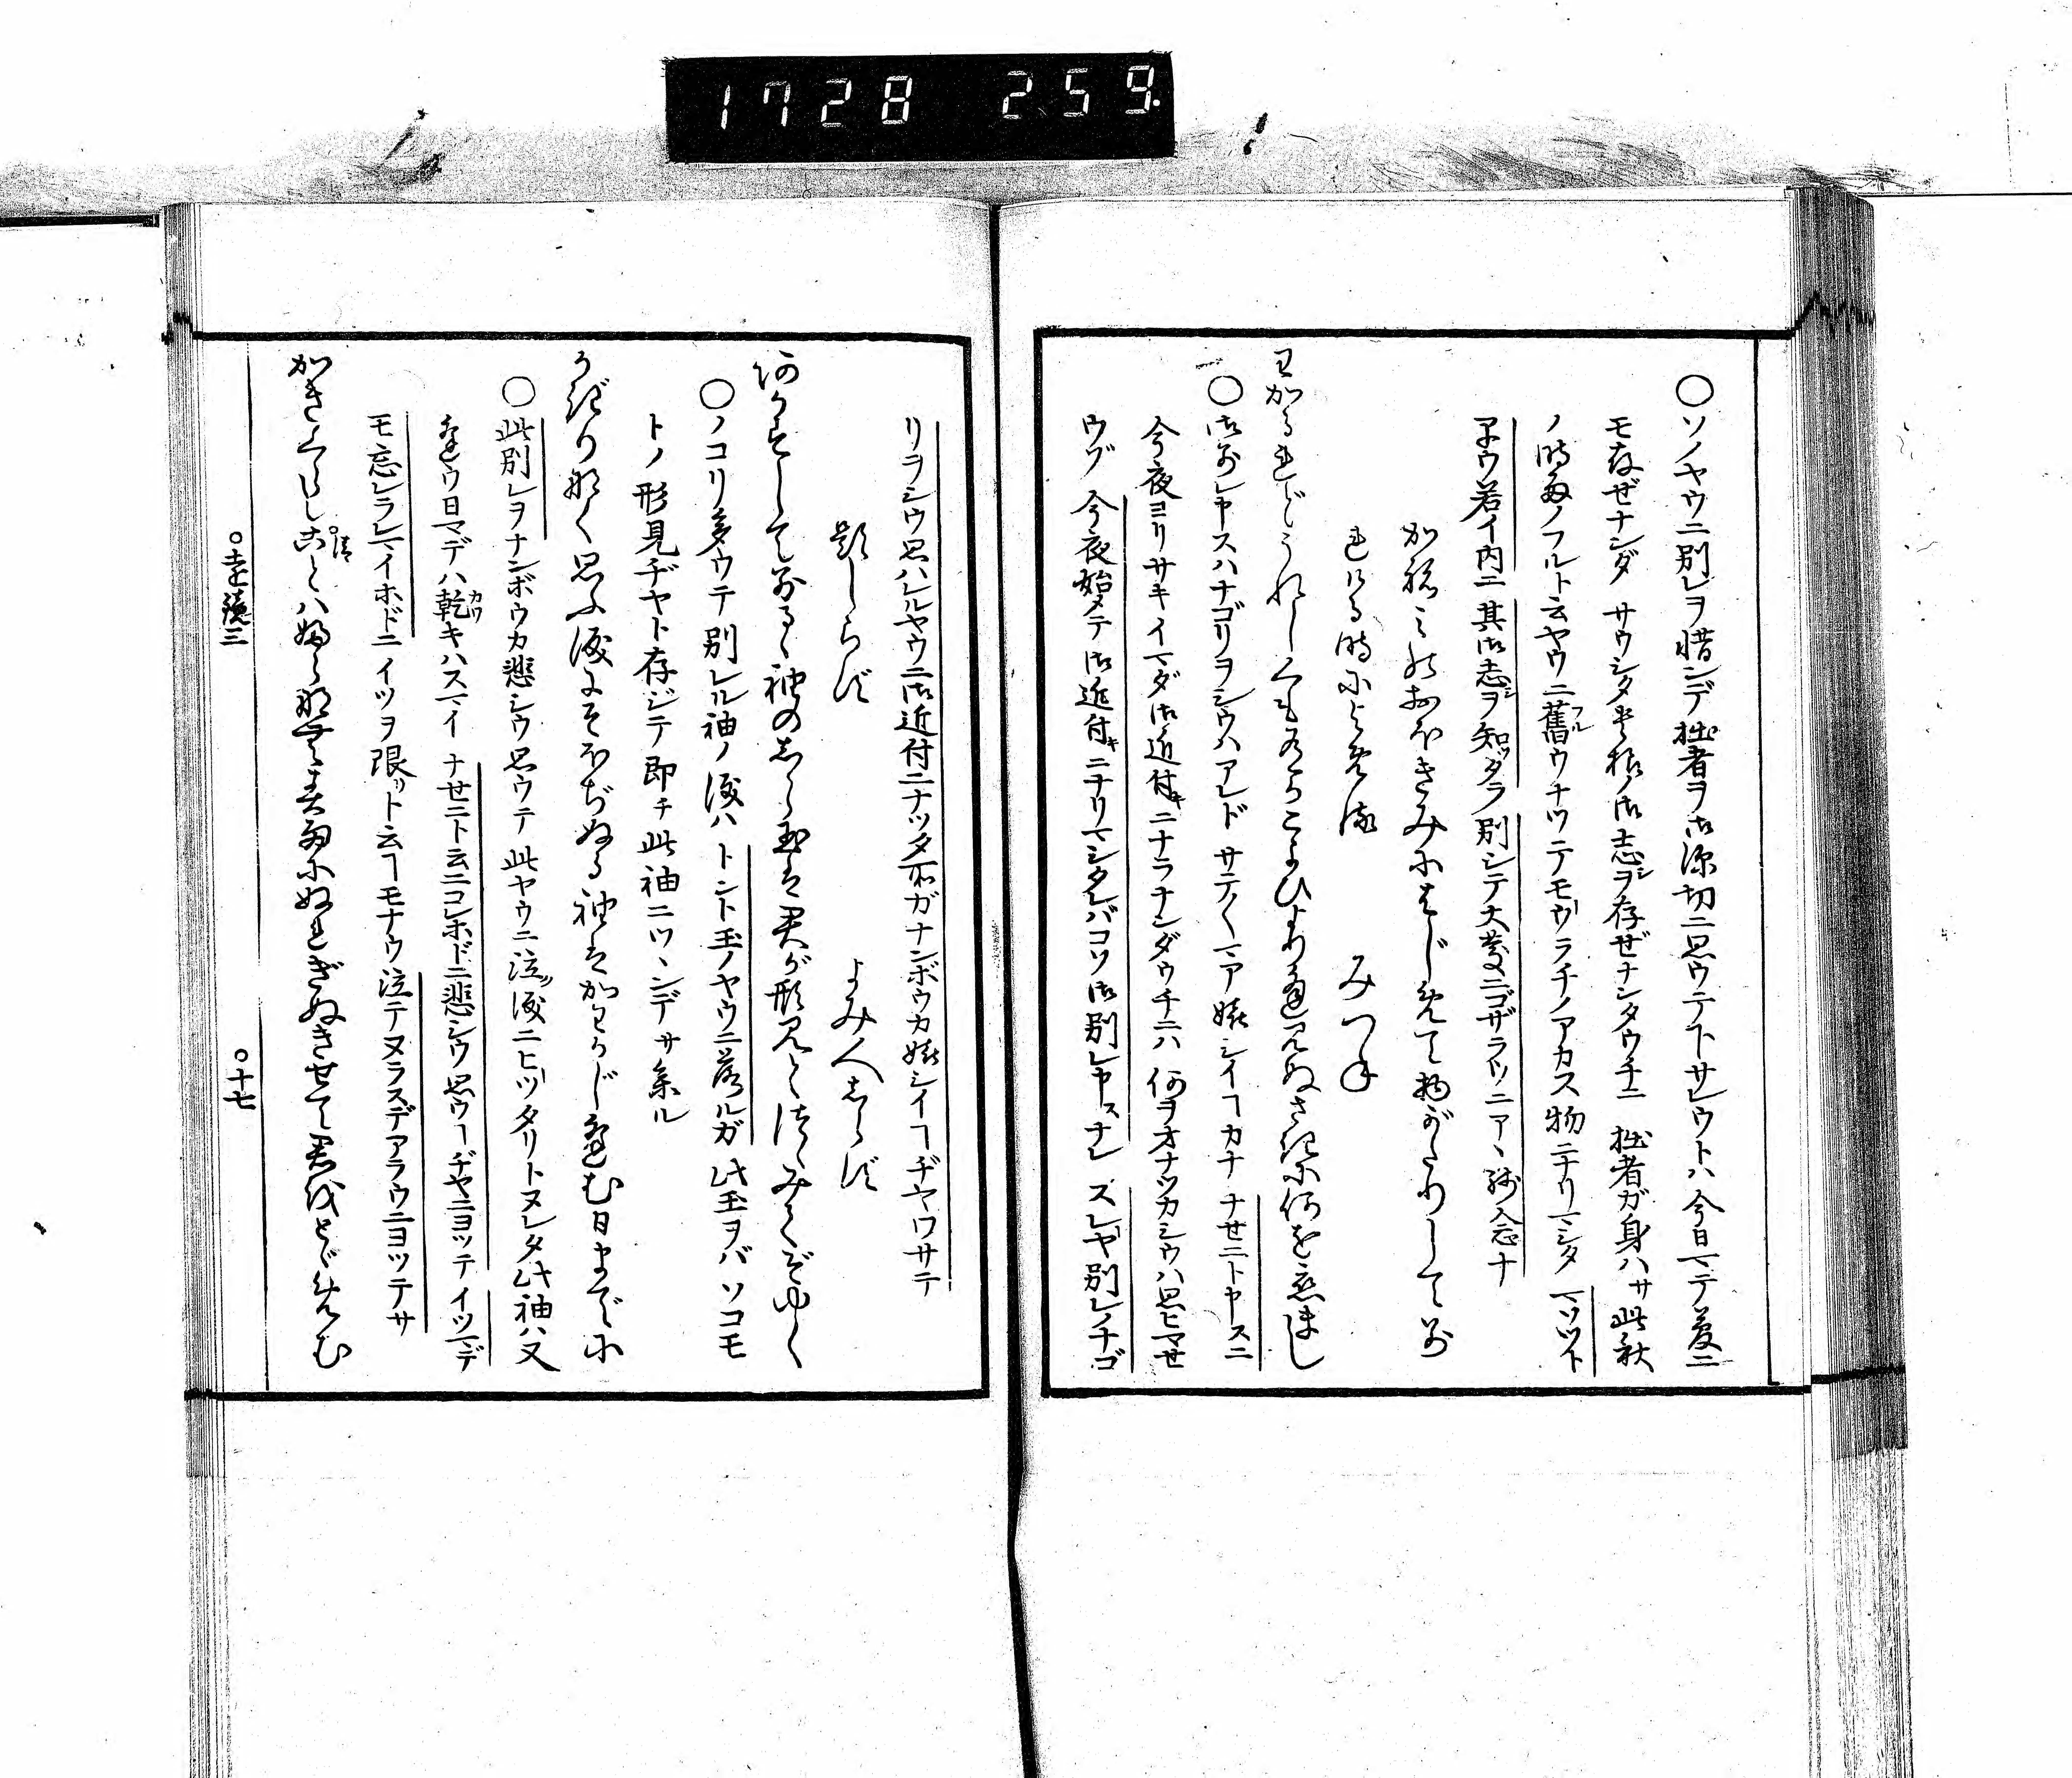 1728 259
○ソノヤウニ別レヲ惜ンデ拙者ヲ御深切ニ思ウテ下サレウトハ今日マデ夢ニ
モ存ぜナンダ サウシタ貴様ノ御志ヲ存ぜナンダウチニ 拙者ガ身ハサ此秋
ノ時雨ノフルト云ヤウニ舊ウナツテモウラチノアカヌ物ニナリマシタ マソツト
早ウ若イ内ニ其御志ヲ知ツタラ別シテ大慶ニゴザラウニアヽ残念ナ
かねみのおほきみにはじめて物がたりして別
れける時によめる みつね
わかるれどうれしくもあるかこよひよりあひ見ぬさきに何を恋まし
○御別レ申スハナゴリヲシウハアレド サテ〳〵マア嬉シイヿカナ ナゼニト申スニ
今夜ヨリサキイマダ御近付キニナラナンダウチニハ 何ヲオナツカシウハ思ヒマせ
ウゾ 今夜始メテ御近付キニナリマシタレバコソ御別レ申スナレ スレヤ別レノナゴ
リヲシウ思ハルルヤウニ御近付ニナツタ所ガナンボウカ嬉シイヿヂヤワサテ
題しらず よみ人しらず
あかずして別るゝ袖のしら玉は君が形見とつゝみてぞゆく
○ノコリ多ウテ別レル袖ノ涙ハ トント玉ノヤウニ落ルガ 此玉ヲバソコモ
トノ形見ヂヤト存ジテ即チ此袖ニツヽンデサ参ル
かぎりなく思ふ涙にそほぢぬる袖はかわかじあはむ日までに
○此別レヲナンボウカ悲シウ思ウテ此ヤウニ泣ク涙ニヒツタリトヌレタ此袖ハ又
逢ウ日マデハ乾キハスマイ ナゼニト云ニコレホドニ悲シウ思ウヿヂヤニヨツテイツマデ
モ忘レラレマイホドニ イツヲ限リト云ヿモナウ泣テヌラスデアラウニヨツテサ
かきくらしことはふらなむ春雨にぬれぎぬきせて君をとゞめむ
○遠鏡三 ○十七